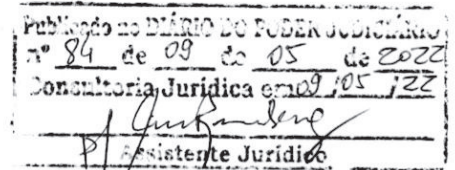 Publicado no DIÁRIO DO PODER JUDICIÁRIO
nº 84 de 09 do 05 de 2022
Consultoria Jurídica em 09/05/22
Assistente Jurídico